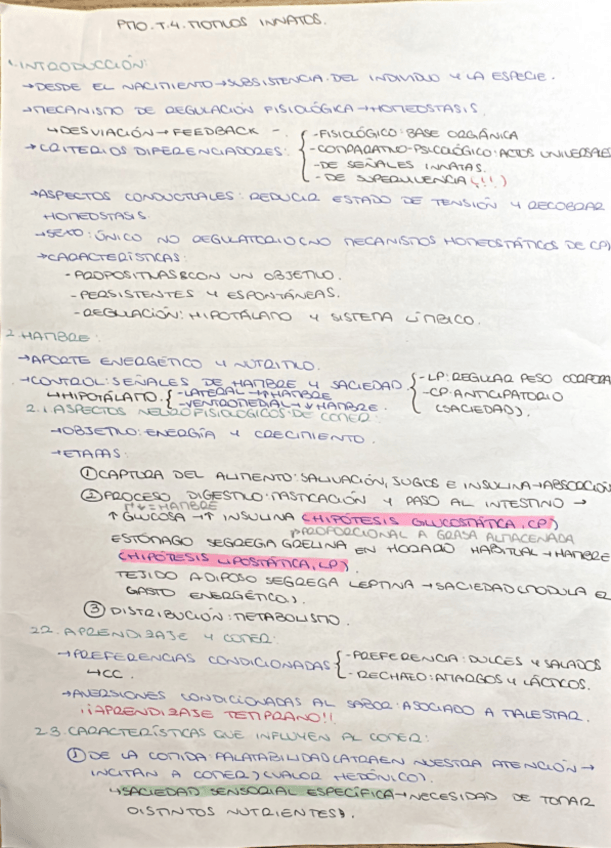 PMO.T.4. MOTIVOS INNATOS.
1. INTRODUCCIÓN:
→DESDE EL NACIMIENTO→SUBSISTENCIA DEL INDIVIDUO Y LA ESPECIE.
→MECANISMO DE REGULACIÓN FISIOLÓGICA→HOMEOSTASIS.
↳DESVIACIÓN→FEEDBACK -.
→CRITERIOS DIFERENCIADORES:
-FISIOLÓGICO: BASE ORGÁNICA
-COMPARATIVO-PSICOLÓGICO: ACTOS UNIVERSALES
-DE SEÑALES INNATAS.
-DE SUPERVIVENCIA (!!)
→ASPECTOS CONDUCTUALES: REDUCIR ESTADO DE TENSIÓN Y RECOBRAR
HOMEOSTASIS.
→SEXO: ÚNICO NO REGULATORIO (NO MECANISMOS HOMEOSTÁTICOS DE
→CARACTERÍSTICAS:
-PROPOSITIVAS CON UN OBJETIVO.
-PERSISTENTES Y ESPONTÁNEAS.
-REGULACIÓN: HIPOTÁLAMO Y SISTEMA LÍMBICO.
2. HAMBRE:
→APORTE ENERGÉTICO Y NUTRITIVO.
→CONTROL: SEÑALES DE HAMBRE Y SACIEDAD
-LP: REGULAR PESO CORPORA
-CP: ANTICIPATORIO
(SACIEDAD).
↳HIPOTÁLAMO
-LATERAL→↑HAMBRE
-VENTROMEDIAL→↓HAMBRE.
2.1 ASPECTOS NEUROFISIOLÓGICOS DE COMER:
→OBJETIVO: ENERGÍA Y CRECIMIENTO.
→ETAPAS:
①CAPTURA DEL ALIMENTO: SALIVACIÓN, JUGOS E INSULINA→ABSORCIÓN
②PROCESO DIGESTIVO: MASTICACIÓN Y PASO AL INTESTINO →
↓=HAMBRE
↑ GLUCOSA →↑ INSULINA (HIPÓTESIS GLUCOSTÁTICA, CP)
PROPORCIONAL A GRASA ALMACENADA
ESTÓMAGO SEGREGA GRELINA EN HORARIO HABITUAL→HAMBRE
(HIPÓTESIS LIPOSTÁTICA, LP)
TEJIDO ADIPOSO SEGREGA LEPTINA →SACIEDAD (MODULA EL
GASTO ENERGÉTICO).
③ DISTRIBUCIÓN: METABOLISMO.
2.2. APRENDIZAJE Y COMER:
→PREFERENCIAS CONDICIONADAS
-PREFERENCIA: DULCES Y SALADOS
-RECHAZO: AMARGOS Y LÁCTICOS.
↳CC.
→AVERSIONES CONDICIONADAS AL SABOR: ASOCIADO A MALESTAR.
¡¡APRENDIZAJE TEMPRANO!!
2.3. CARACTERÍSTICAS QUE INFLUYEN AL COMER:
① DE LA COMIDA: PALATABILIDAD (ATRAEN NUESTRA ATENCIÓN→
INCITAN A COMER) (VALOR HEDÓNICO).
↳SACIEDAD SENSORIAL ESPECÍFICA→NECESIDAD DE TOMAR
DISTINTOS NUTRIENTES).